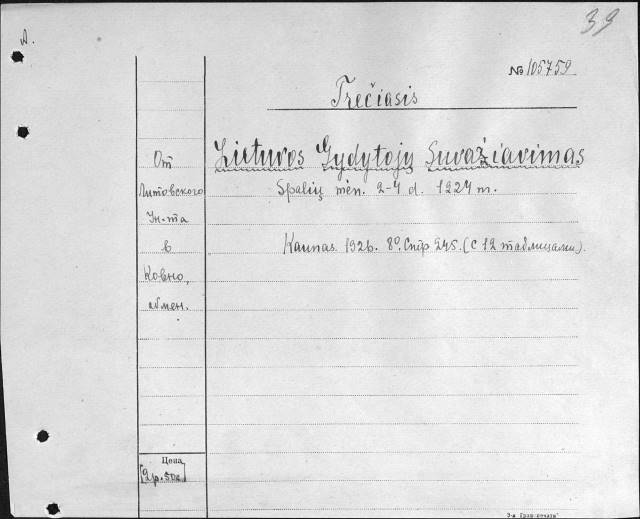 39
A.
№ 105759.
Trečiasis
Lietuvos Gydytojų Suvažiavimas
Spalių mėn. 2-4 d. 1924 m.
Kaunas. 1926. 8º. Стр. 245. (с 12 таблицами).
От
Литовского
Ин-та
в
Ковно,
обмен.
Цена
[2р.50к]